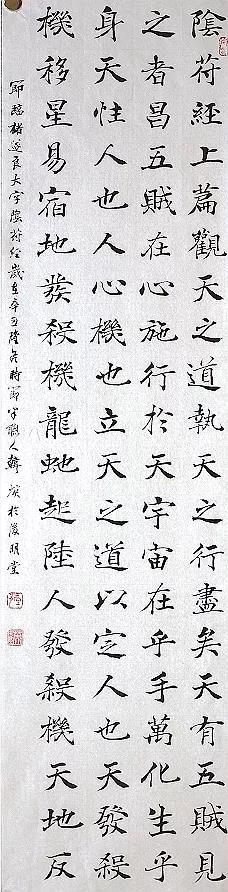 陰符經上篇觀天之道執天之行盡矣天有五賊見
之者昌五賊在心施行於天宇宙在乎手萬化生乎
身天性人也人心機也立天之道以定人也天發殺
機移星易宿地發殺機龍虵起陸人發殺機天地反
節臨褚遂良大字陰符經歲在辛丑隆冬時節人於明堂